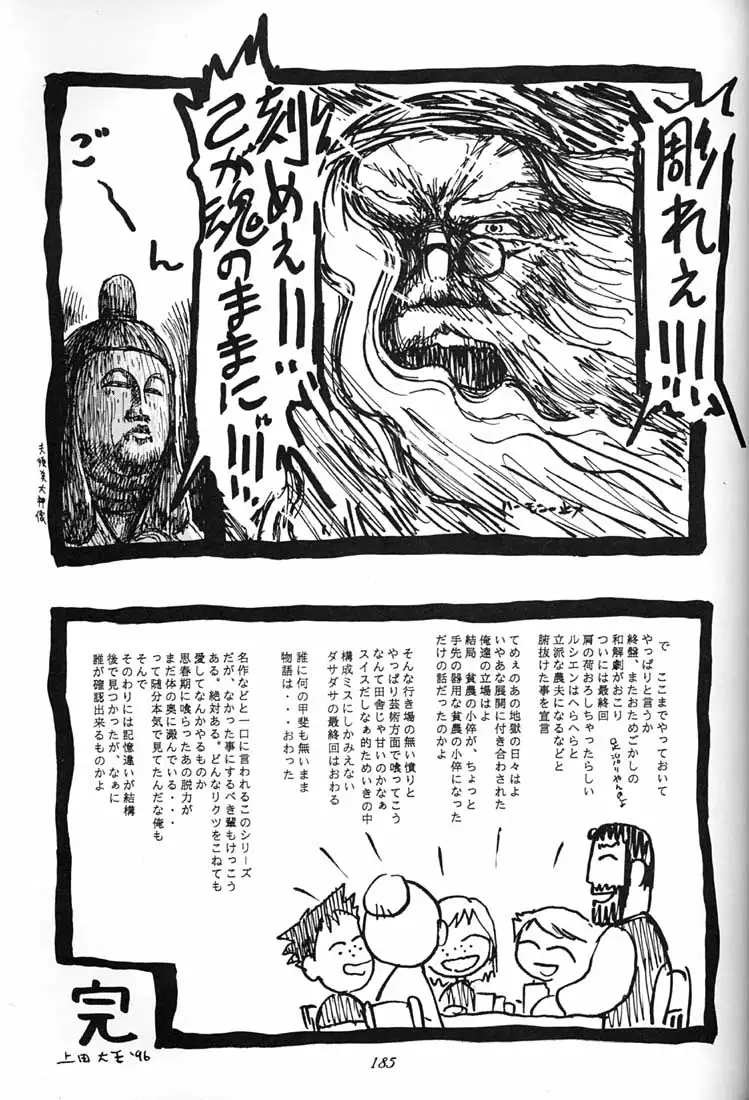 彫れぇ!!!
刻めぇ!!
己が魂のままに!!!
ごーん
で ここまでやっておいて
やっぱりと言うか
終盤、またおためごかしの
和解劇がおこり
ついには最終回
肩の荷おろしちゃったらしい
ルシエンはへらへらと
立派な農夫になるなどと
腑抜けた事を宣言
てめえのあの地獄の日々はよ
いやあな展開に付き合わされた
俺達の立場はよ
結局 貧農の小倅が、ちょっと
手先の器用な貧農の小倅になった
だけの話だったのかよ
そんな行き場の無い憤りと
やっぱり芸術方面で喰ってこう
なんて田舎じゃ甘いのかなぁ
スイスだしなぁ的ためいきの中
構成ミスにしかみえない
ダサダサの最終回はおわる
誰に何の甲斐も無いまま
物語は・・・おわった
名作などと一口に言われるこのシリーズ
だが、なかった事にするべき輩もけっこう
ある。絶対ある。どんなリクツをこねても
愛してなんかやるものか
思春期に喰らったあの脱力が
まだ体の奥に澱んでいる・・・
って随分本気で見てたんだな俺も
そんで
そのわりには記憶違いが結構
後で見つかったが、なぁに
誰が確認出来るものかよ
完
'96
185